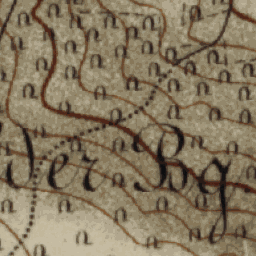 der Bg